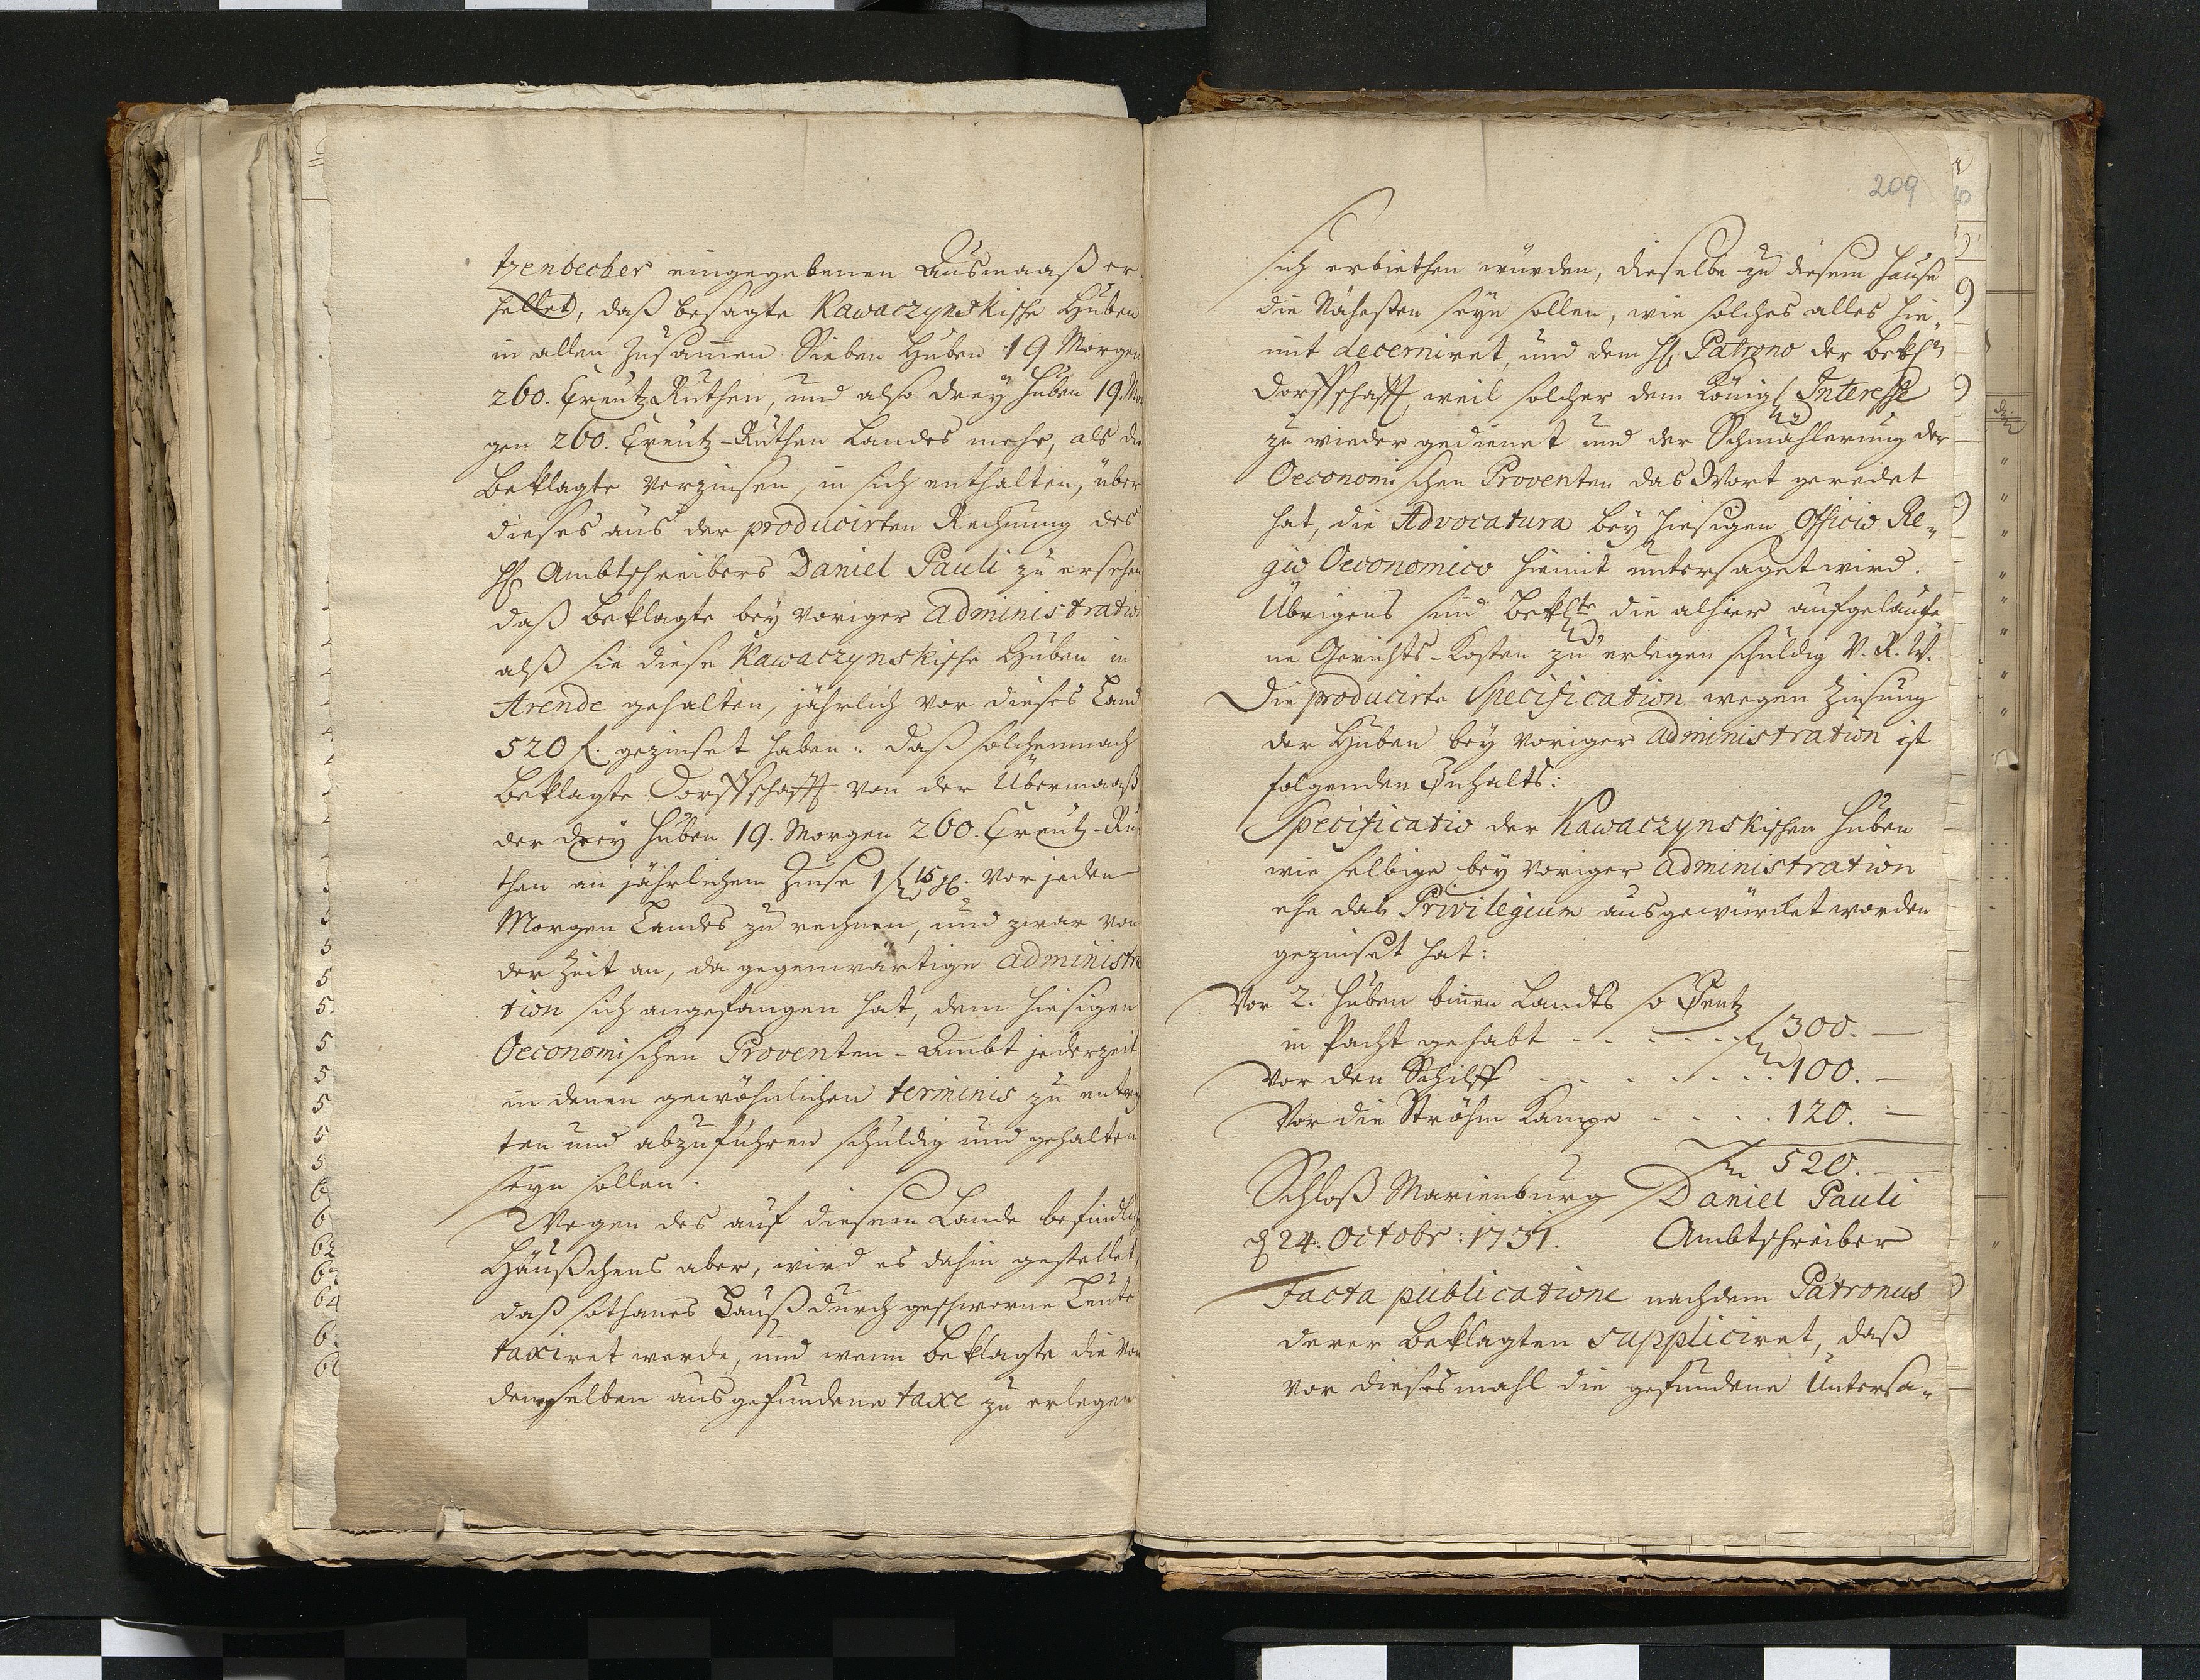 tzenbecher eingegebenen Ausmaaß er-
hellet, daß besagte Kawaczynskische Huben
in allen Zusamen Sieben Huben 19 Morgen
260. Creutz Ruthen, und also drey Huben 19. Mor
gen 260. Creutz-Ruthen Landes mehr, als die
Beklagte Verzinsen, in sich enthalten, über
dieses aus der producirten Rechnung des
H. Ambtschreibers Daniel Pauli zu ersehen
daß Beklagte bey voriger Administration
alß sie diese Kawaczynskische Huben in
Arende gehalten, jährlich vor dieses Land
520 f. gezinset haben: daß solchemnach
Beklagte Dorffschafft von der Übermaaß
der drey Huben 19. Morgen 260. Creutz-Ru
then an jährlichem Zinse 1 f 15 gl. vor jeden
Morgen Landes zu rechnen, und zwar von
der Zeit an, da gegenwärtige Administra
tion sich angefangen hat, dem hiesigen
Oeconomischen Proventen-Ambt jederzeit
in denen gewöhnlichen terminis zu entrich
ten und abzuführen schuldig und gehalten
seyn sollen.
Wegen des auf diesem Lande befindlich
Häußchens aber, wird es dahin gestellet,
daß sothanes Hauß durch geschworne Leute
taxiret werde, und wenn Beklagte die von
demselben ausgefundene taxe zu erlegen
209
sich erbiethen würden, dieselbe zu diesem Hause
die Nähesten seyn sollen, wie solches alles hie-
mit decerniret, und dem H. Patrono der Bekl.
Dorffschafft, weil solcher dem Königl. Interesse
zu wieder gedienet und der Schmählerung der
Oeconomischen Proventen das Wort geredet
hat, die Advocatura bey hiesigen Officio Re-
gio Oeconomico hiemit untersaget wird.
Übrigens sind Beklte die alhier aufgelaufe-
ne Gerichts-Kosten zu erlegen schuldig V. R. W.
Die producirte Specification wegen Zinsung
der Huben bey voriger Administration ist
folgenden Inhalts:
Specificatio der Kawaczynskischen Huben
wie selbige bey voriger Administration
ehe das Privilegium ausgewürcket worden
gezinset hat:
Vor 2. Huben binnen Landes so
in Pacht gehabt - - - - - - f 300. —
Vor den Schilff - - - - - - - 100. —
Vor die Ströhm Kampe - - - - 120. —
f 520. —
Schloß Marienburg Daniel Pauli
d 24. Octobr: 1731. Ambtschreiber
Facta publicatione nachdem Patronus
derer Beklagten suppliciret, daß
vor dieses mahl die gefundene Untersa-